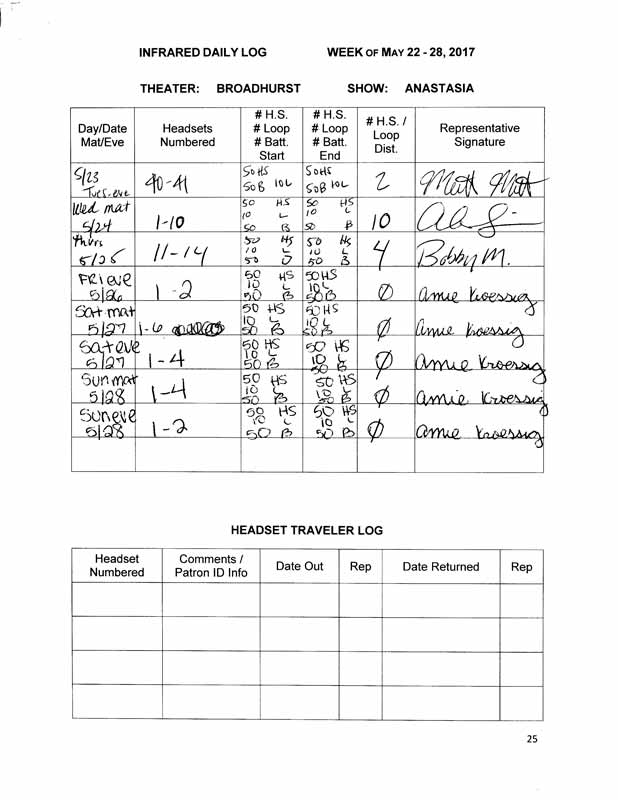 INFRARED DAILY LOG WEEK OF MAY 22 - 28, 2017
THEATER: BROADHURST SHOW: ANASTASIA
Day/Date Mat/Eve Headsets Numbered # H.S. # Loop # Batt. Start # H.S. # Loop # Batt. End # H.S. / Loop Dist. Representative Signature
5/23 Tues. eve 40-41 50HS 50B 10L 50HS 50B 10L 2 Matt
Wed mat 5/24 1-10 50 HS 10 L 50 B 50 HS 10 L 50 B 10
thurs 5/25 11-14 50 HS 10 L 50 50 HS 10 L 50 B 4 Bobby M.
FRI eve 5/26 1-2 50 HS 10 L 50 B 50HS 10L 50B 0 Amie Kroessig
Sat mat 5/27 1-6 50 HS 10 L 50 B 50HS 10 L 50 B 0 Amie Kroessig
Sat eve 5/27 1-4 50 HS 10 L 50 B 50 HS 10 L 50 B 0 Amie Kroessig
Sun mat 5/28 1-4 50 HS 10 L 50 B 50 HS 10 L 50 B 0 Amie Kroessig
Sun eve 5/28 1-2 50 HS 10 L 50 B 50 HS 10 L 50 B 0 Amie Kroessig
HEADSET TRAVELER LOG
Headset Numbered Comments / Patron ID Info Date Out Rep Date Returned Rep
25